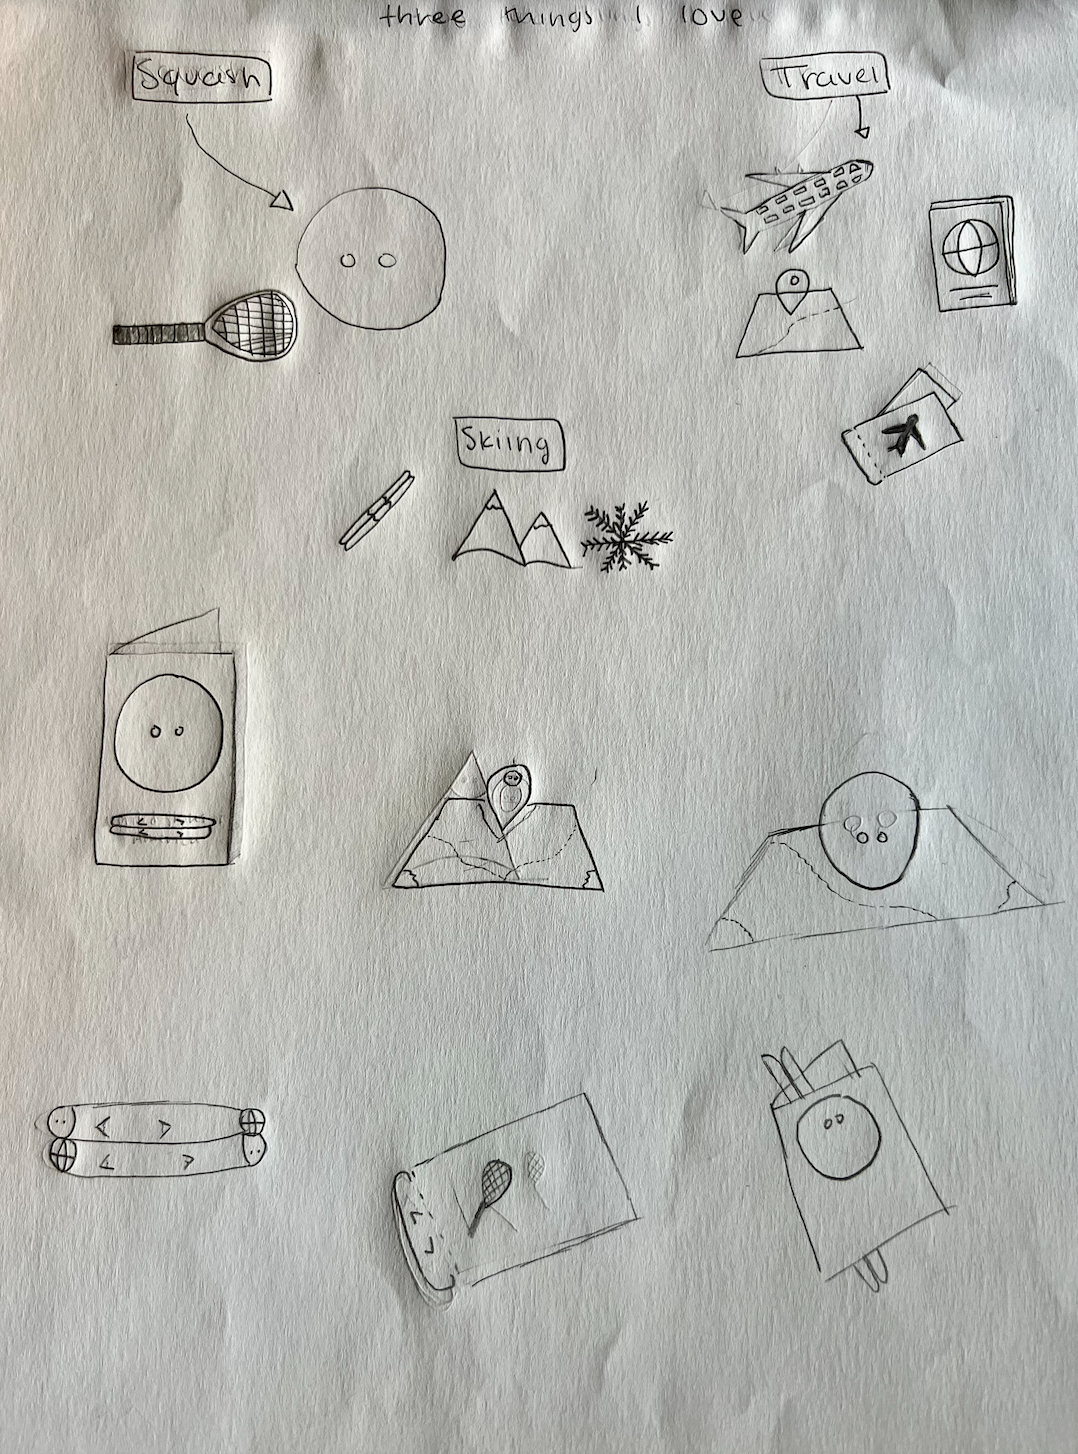 three things I love
Squash
Travel
Skiing